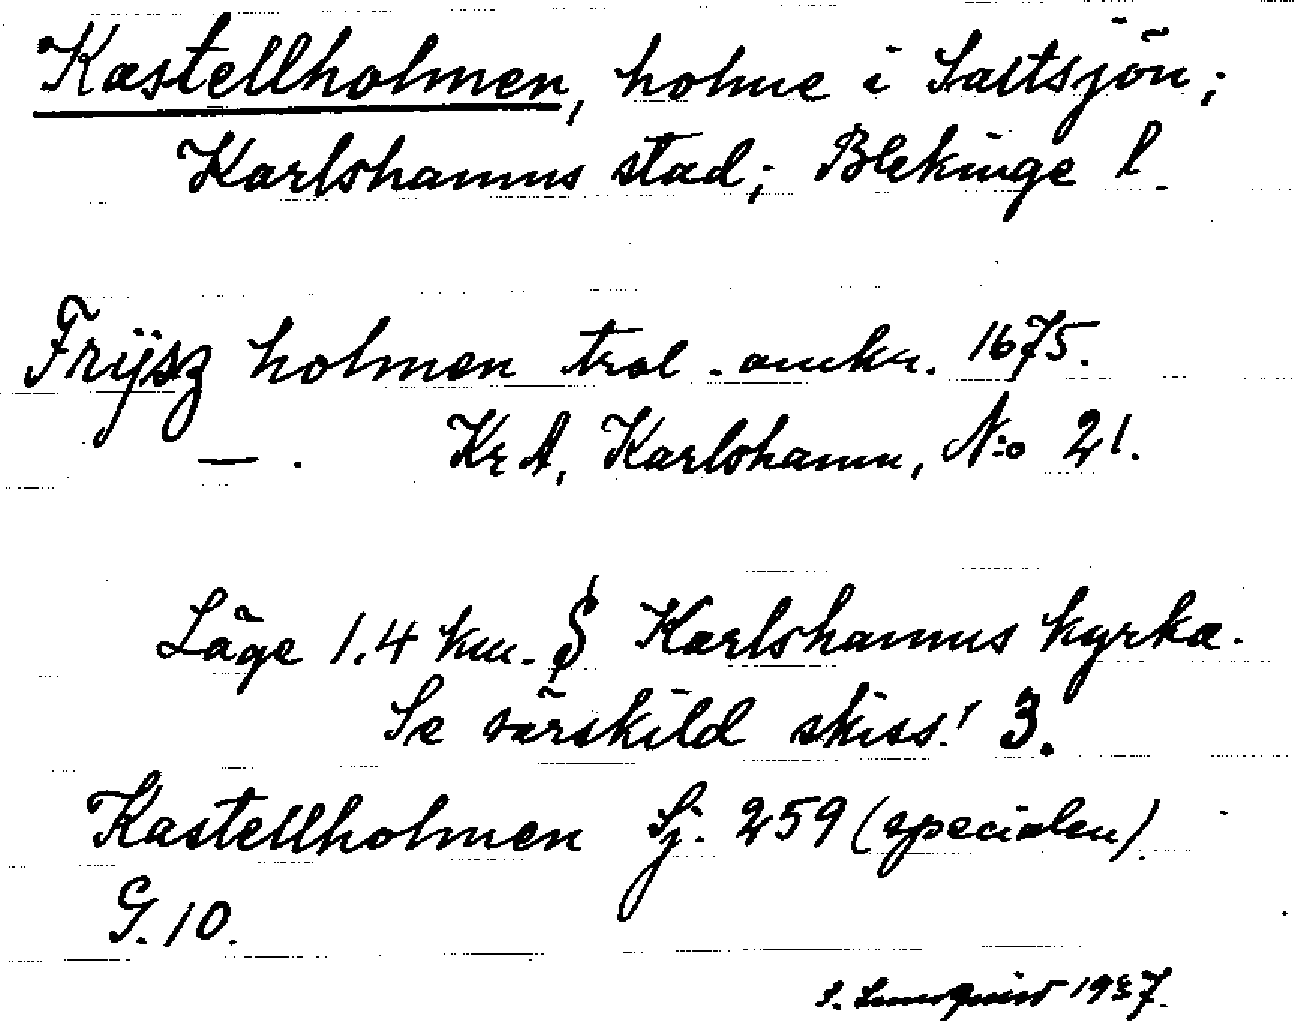 Kastellholmen, holme i Saltsjön;
Karlshamns stad; Blekinge l.
Frÿsz holmen trol. omkr. 1675.
— . KrA, Karlshamn, N:o 21.
Läge 1.4 km. S Karlshamns kyrka.
Se särskild skiss! 3.
Kastellholmen Sj. 259 (specialen).
G. 10.
1937.